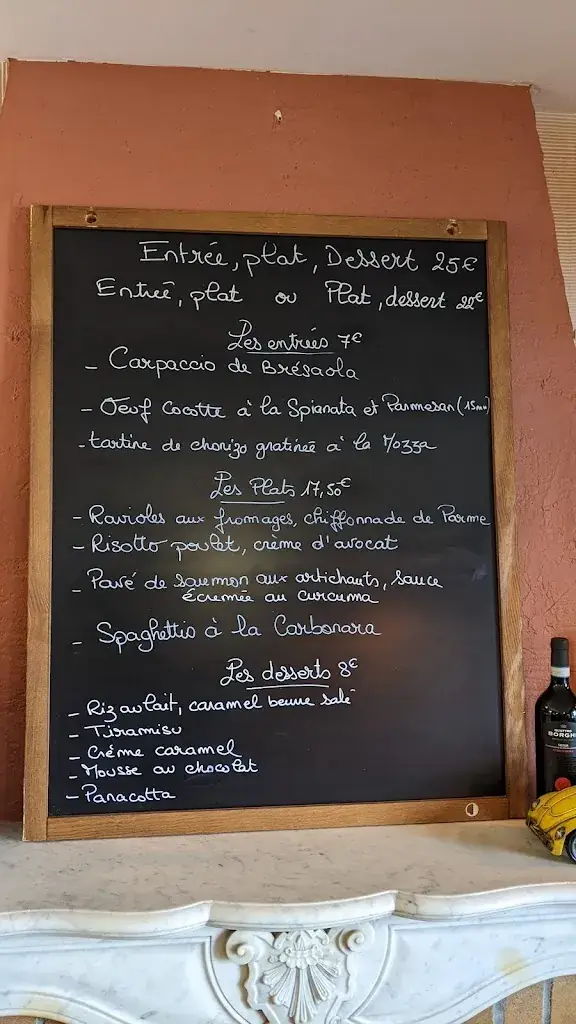 Entrée, plat, Dessert 25€
Entrée, plat ou Plat, dessert 22€
Les entrées 7€
- Carpaccio de Brésaola
- Oeuf Cocotte à la Spianata et Parmesan (15mn)
- tartine de chorizo gratinée à la Mozza
Les Plats 17,50€
- Ravioles aux fromages, chiffonnade de Parme
- Risotto poulet, crème d'avocat
- Pavé de saumon aux artichauts, sauce
écremée au curcuma
- Spaghettis à la Carbonara
Les desserts 8€
- Riz au lait, caramel beurre salé
- Tiramisu
- Créme caramel
- Mousse au chocolat
- Panacotta
BORGHI